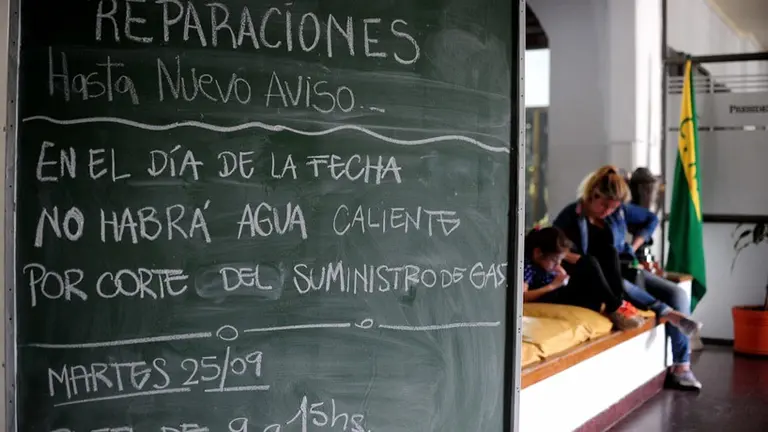 REPARACIONES
Hasta Nuevo Aviso...
EN EL DÍA DE LA FECHA
NO HABRÁ AGUA CALIENTE
POR CORTE DEL SUMINISTRO DE GAS
MARTES 25/09
15hs.